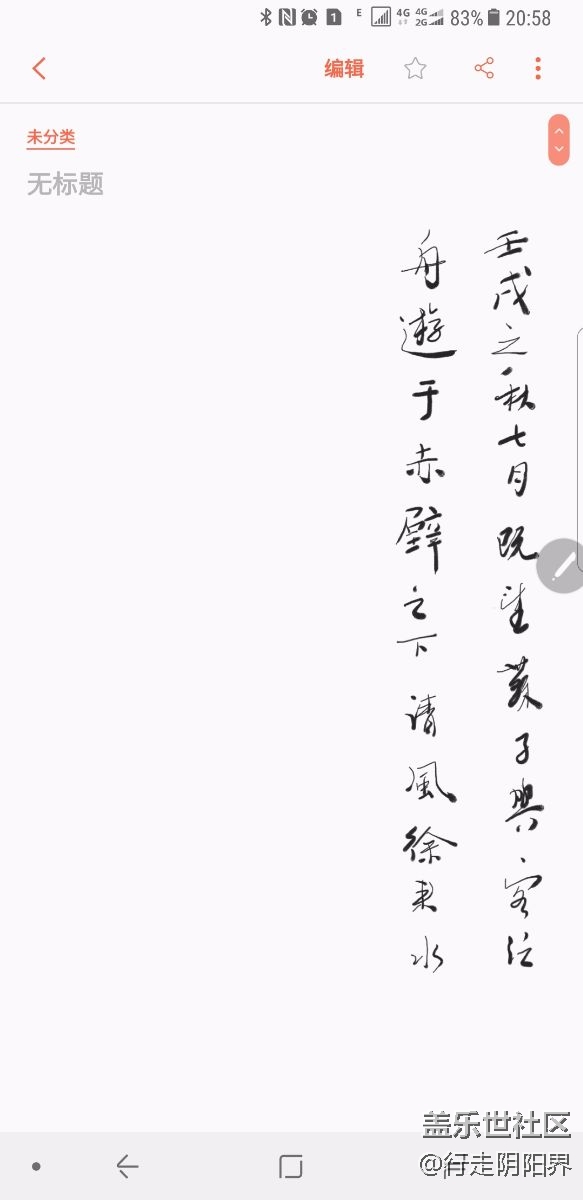 E 1 4G 4G 2G 83% 20:58
编辑
未分类
无标题
壬戌之秋七月既望蘇子與客泛
舟遊于赤壁之下清風徐来水
盖乐世社区
@行走阴阳界